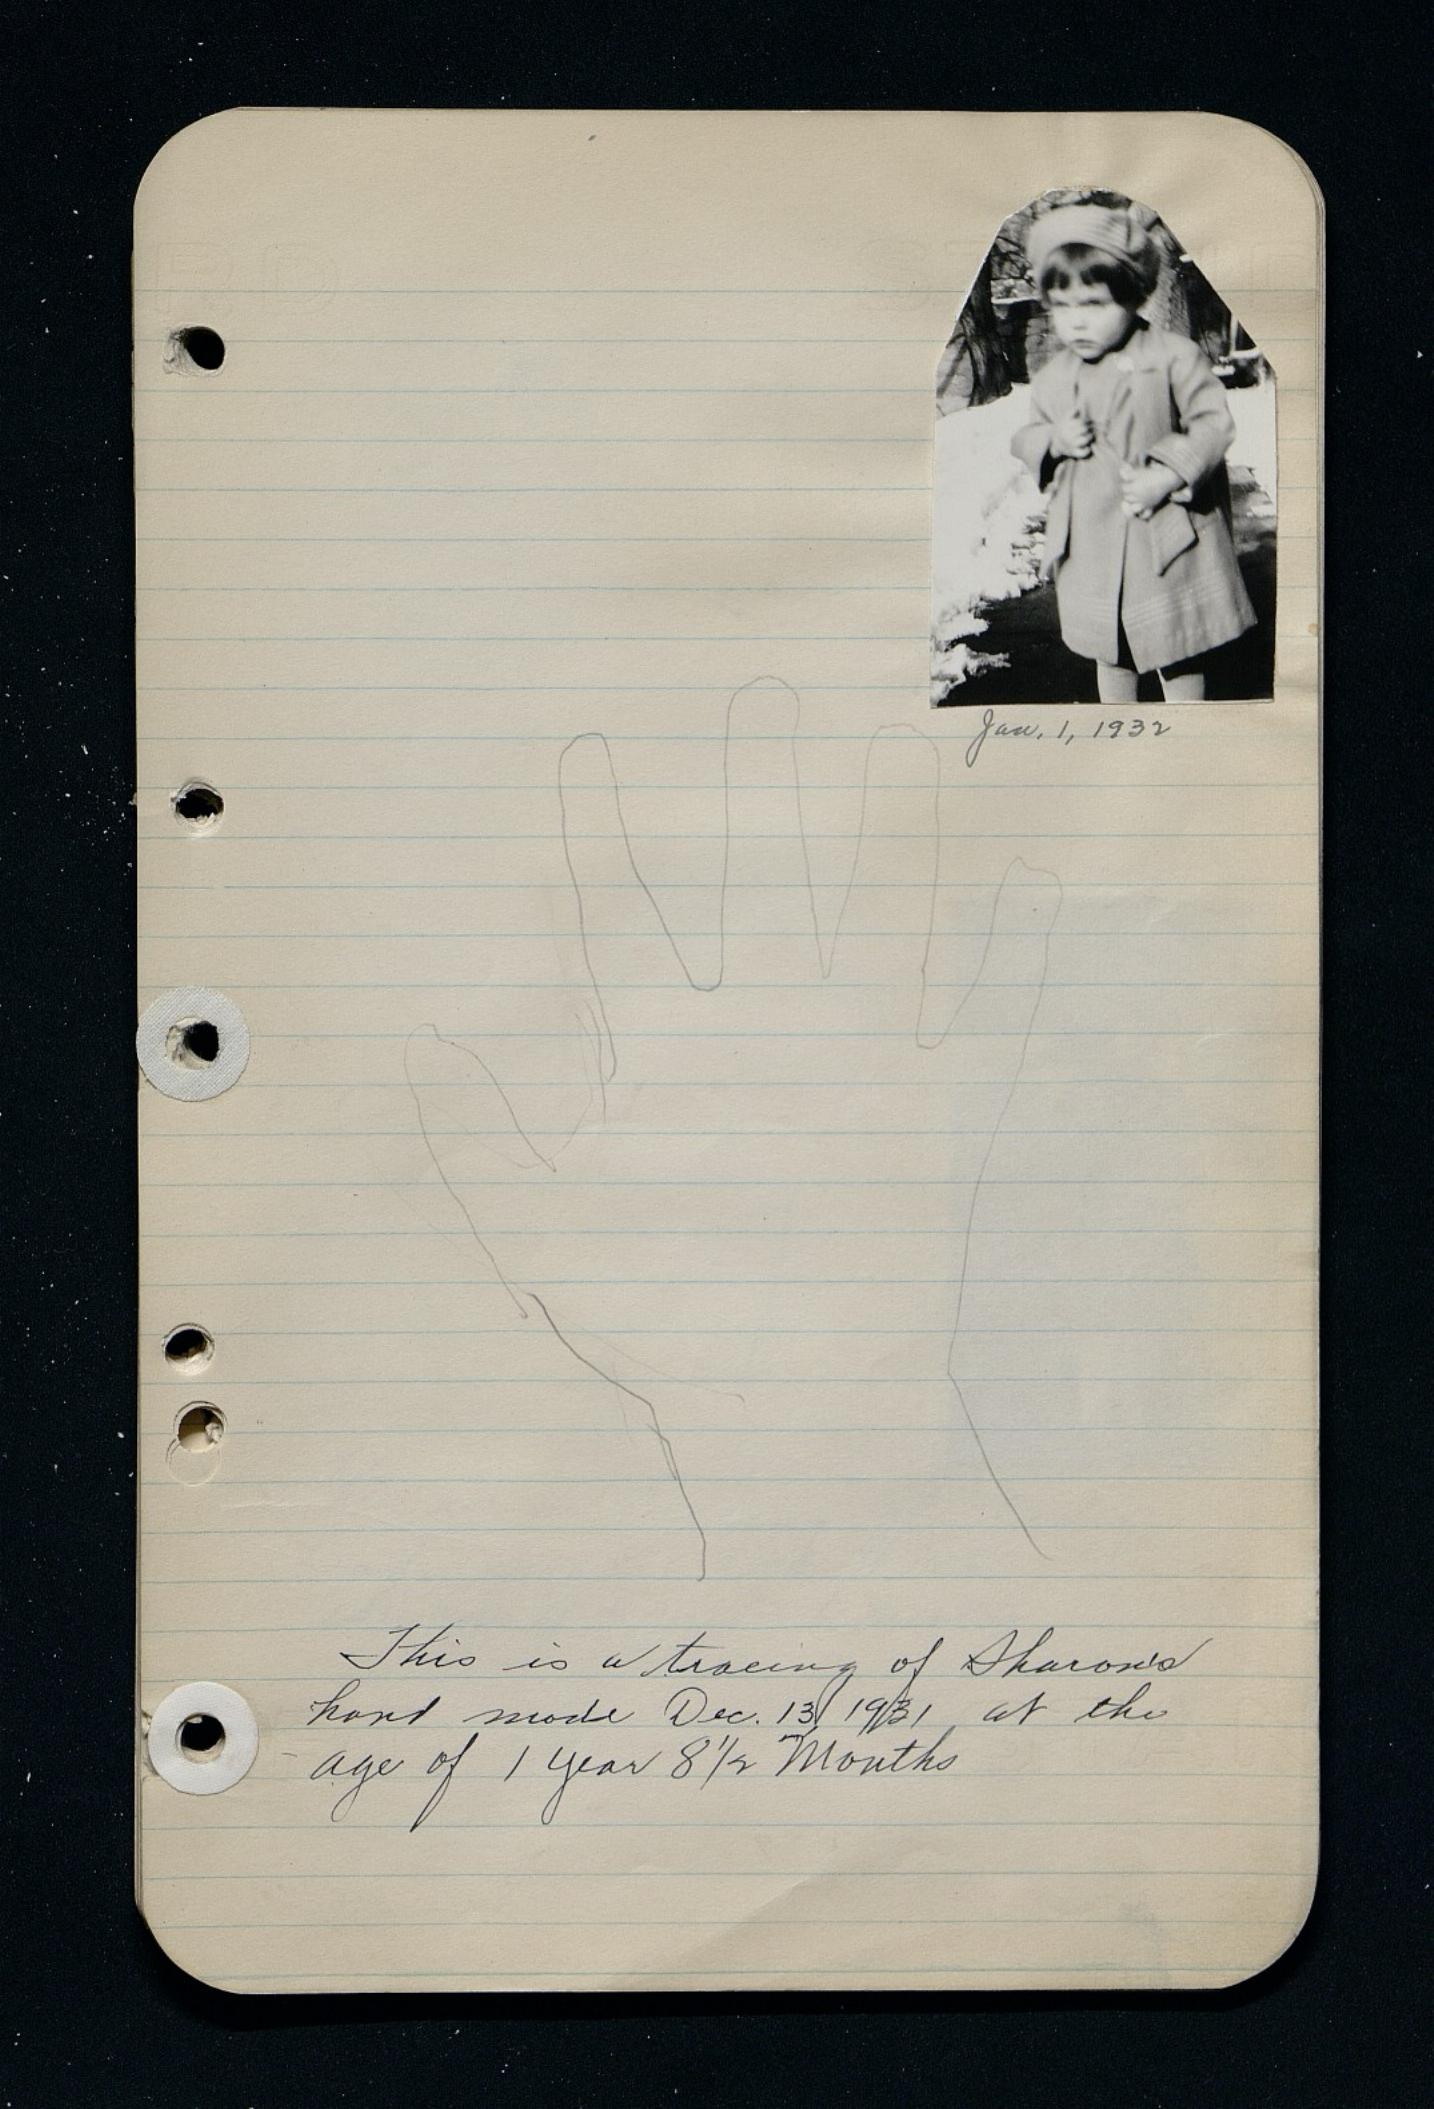 Jan. 1, 1932
This is a tracing of Sharon's
hand made Dec. 13, 1931 at the
age of 1 year 8 1/2 Months